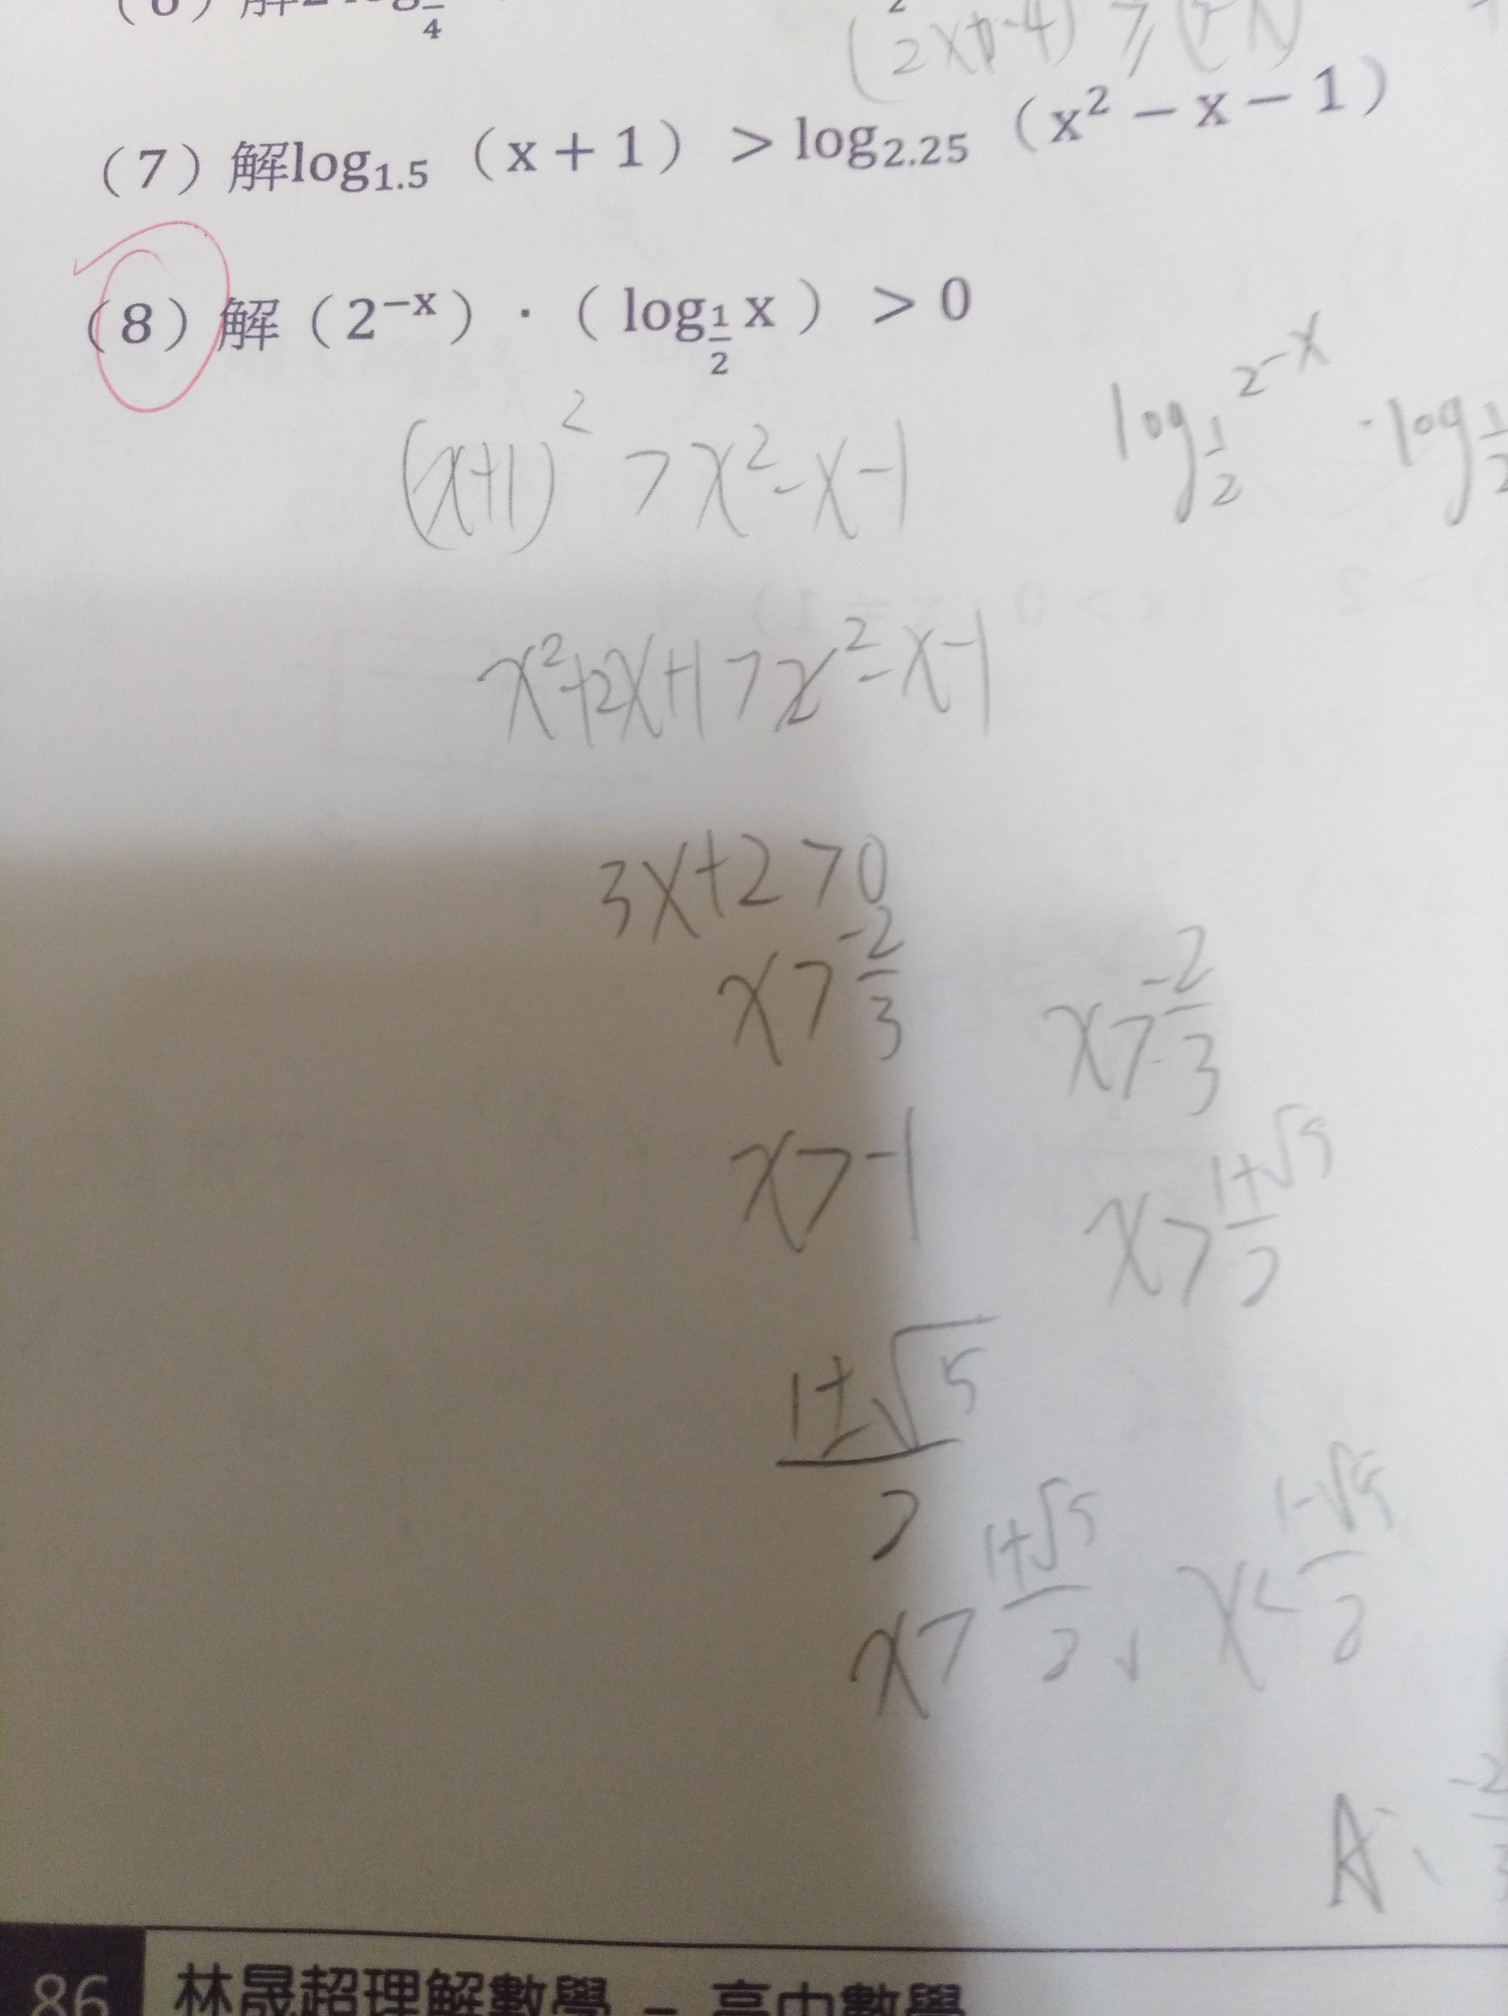 (6) 解2 log 1/4
(2x+-4) ≥ ( )
(7) 解log₁.₅ (x+1) > log₂.₂₅ (x² − x − 1)
(8) 解 (2⁻ˣ) · ( log_{1/2} x ) > 0
(x+1)² > x²-x-1
log_{1/2} 2^{-x} · log_{1/2}
x²+2x+1 > x²-x-1
3x+2 > 0
x > -2/3
x > -2/3
x > -1
x > (1+√5)/2
(1±√5)/2
x > (1+√5)/2 , x < (1-√5)/2
A: -2/3
86 林晟超理解數學 – 高中數學